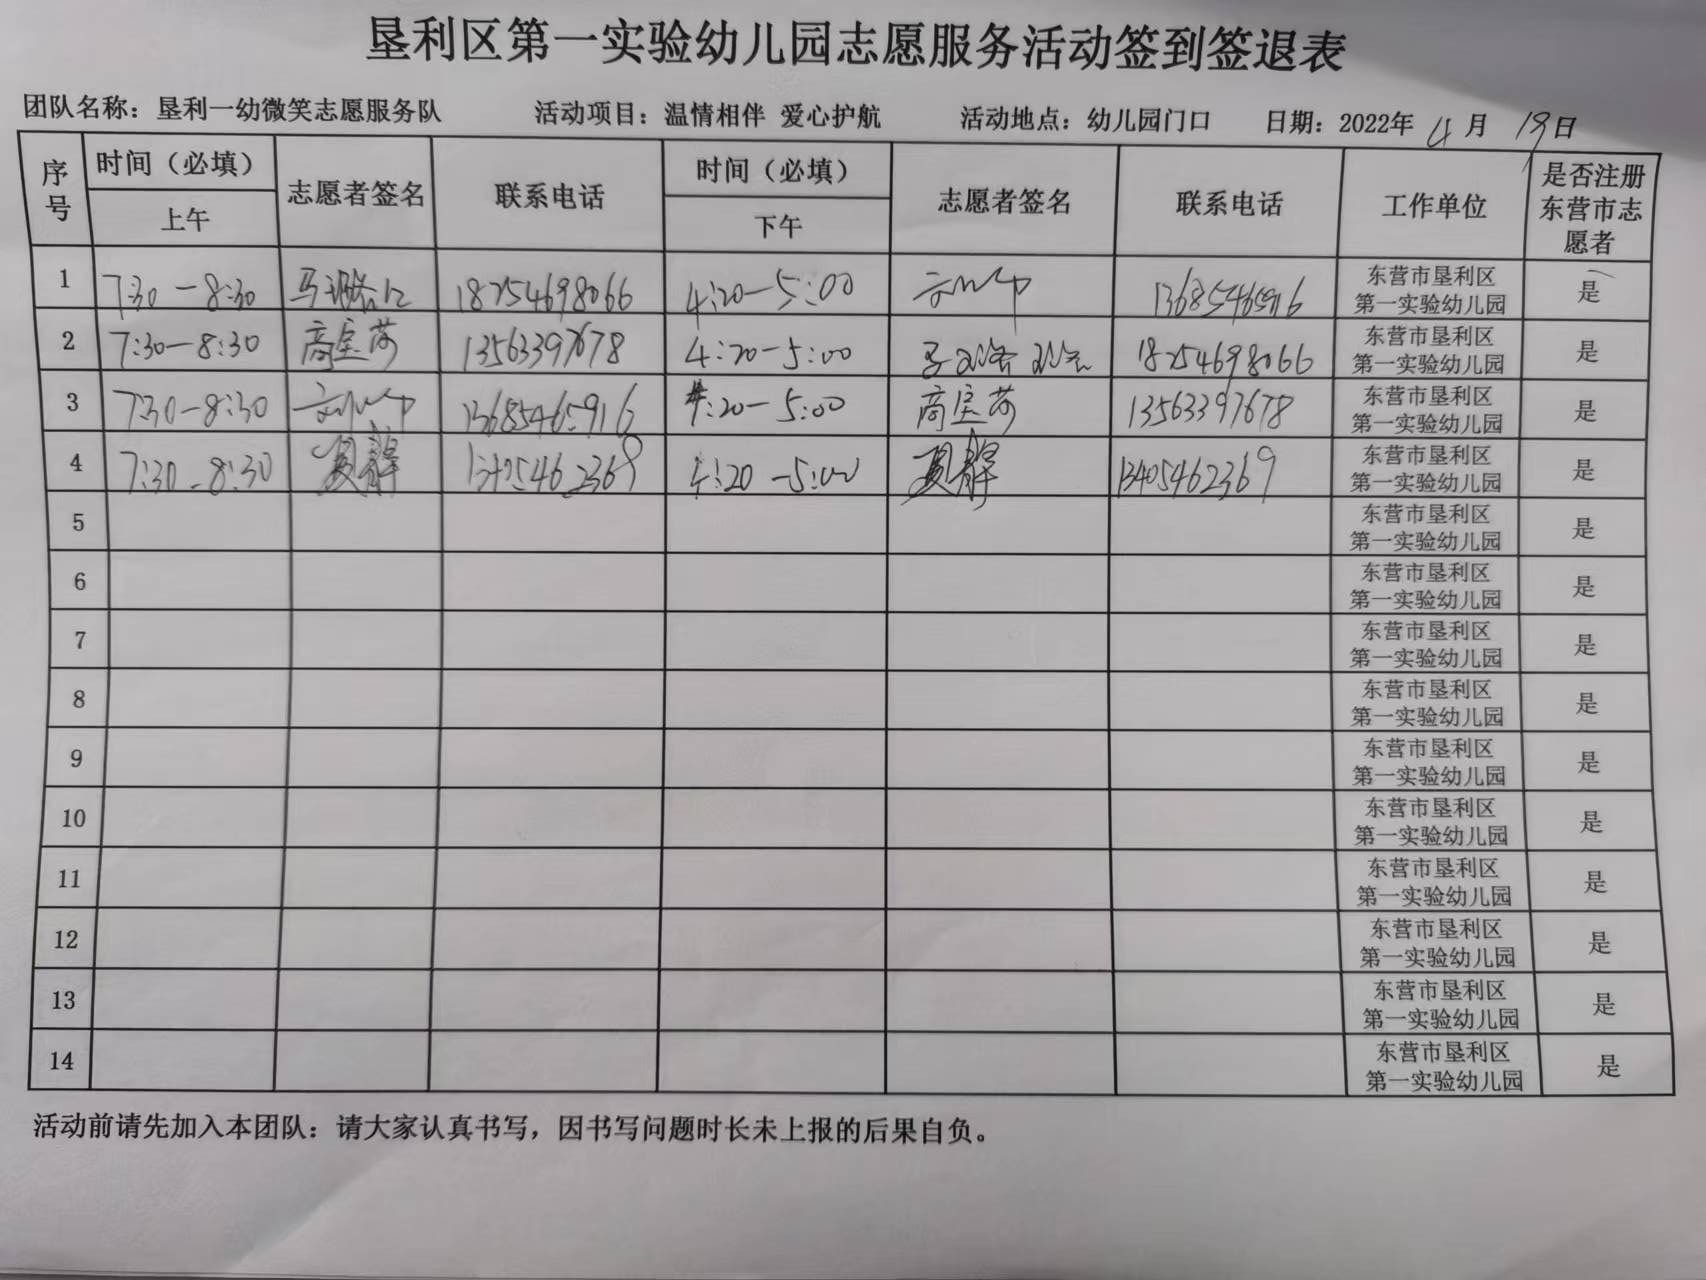 垦利区第一实验幼儿园志愿服务活动签到签退表
团队名称：垦利一幼微笑志愿服务队 活动项目：温情相伴 爱心护航 活动地点：幼儿园门口 日期：2022年 4 月 19日
序号 时间（必填） 上午 志愿者签名 联系电话 时间（必填） 下午 志愿者签名 联系电话 工作单位 是否注册东营市志愿者
1 7:30-8:30 18254698066 4:20-5:00 13685465916 东营市垦利区第一实验幼儿园 是
2 7:30-8:30 13563397678 4:20-5:00 18254698066 东营市垦利区第一实验幼儿园 是
3 7:30-8:30 13685465916 4:20-5:00 13563397678 东营市垦利区第一实验幼儿园 是
4 7:30-8:30 夏静 13405462369 4:20-5:00 夏静 13405462369 东营市垦利区第一实验幼儿园 是
5 东营市垦利区第一实验幼儿园 是
6 东营市垦利区第一实验幼儿园 是
7 东营市垦利区第一实验幼儿园 是
8 东营市垦利区第一实验幼儿园 是
9 东营市垦利区第一实验幼儿园 是
10 东营市垦利区第一实验幼儿园 是
11 东营市垦利区第一实验幼儿园 是
12 东营市垦利区第一实验幼儿园 是
13 东营市垦利区第一实验幼儿园 是
14 东营市垦利区第一实验幼儿园 是
活动前请先加入本团队：请大家认真书写，因书写问题时长未上报的后果自负。